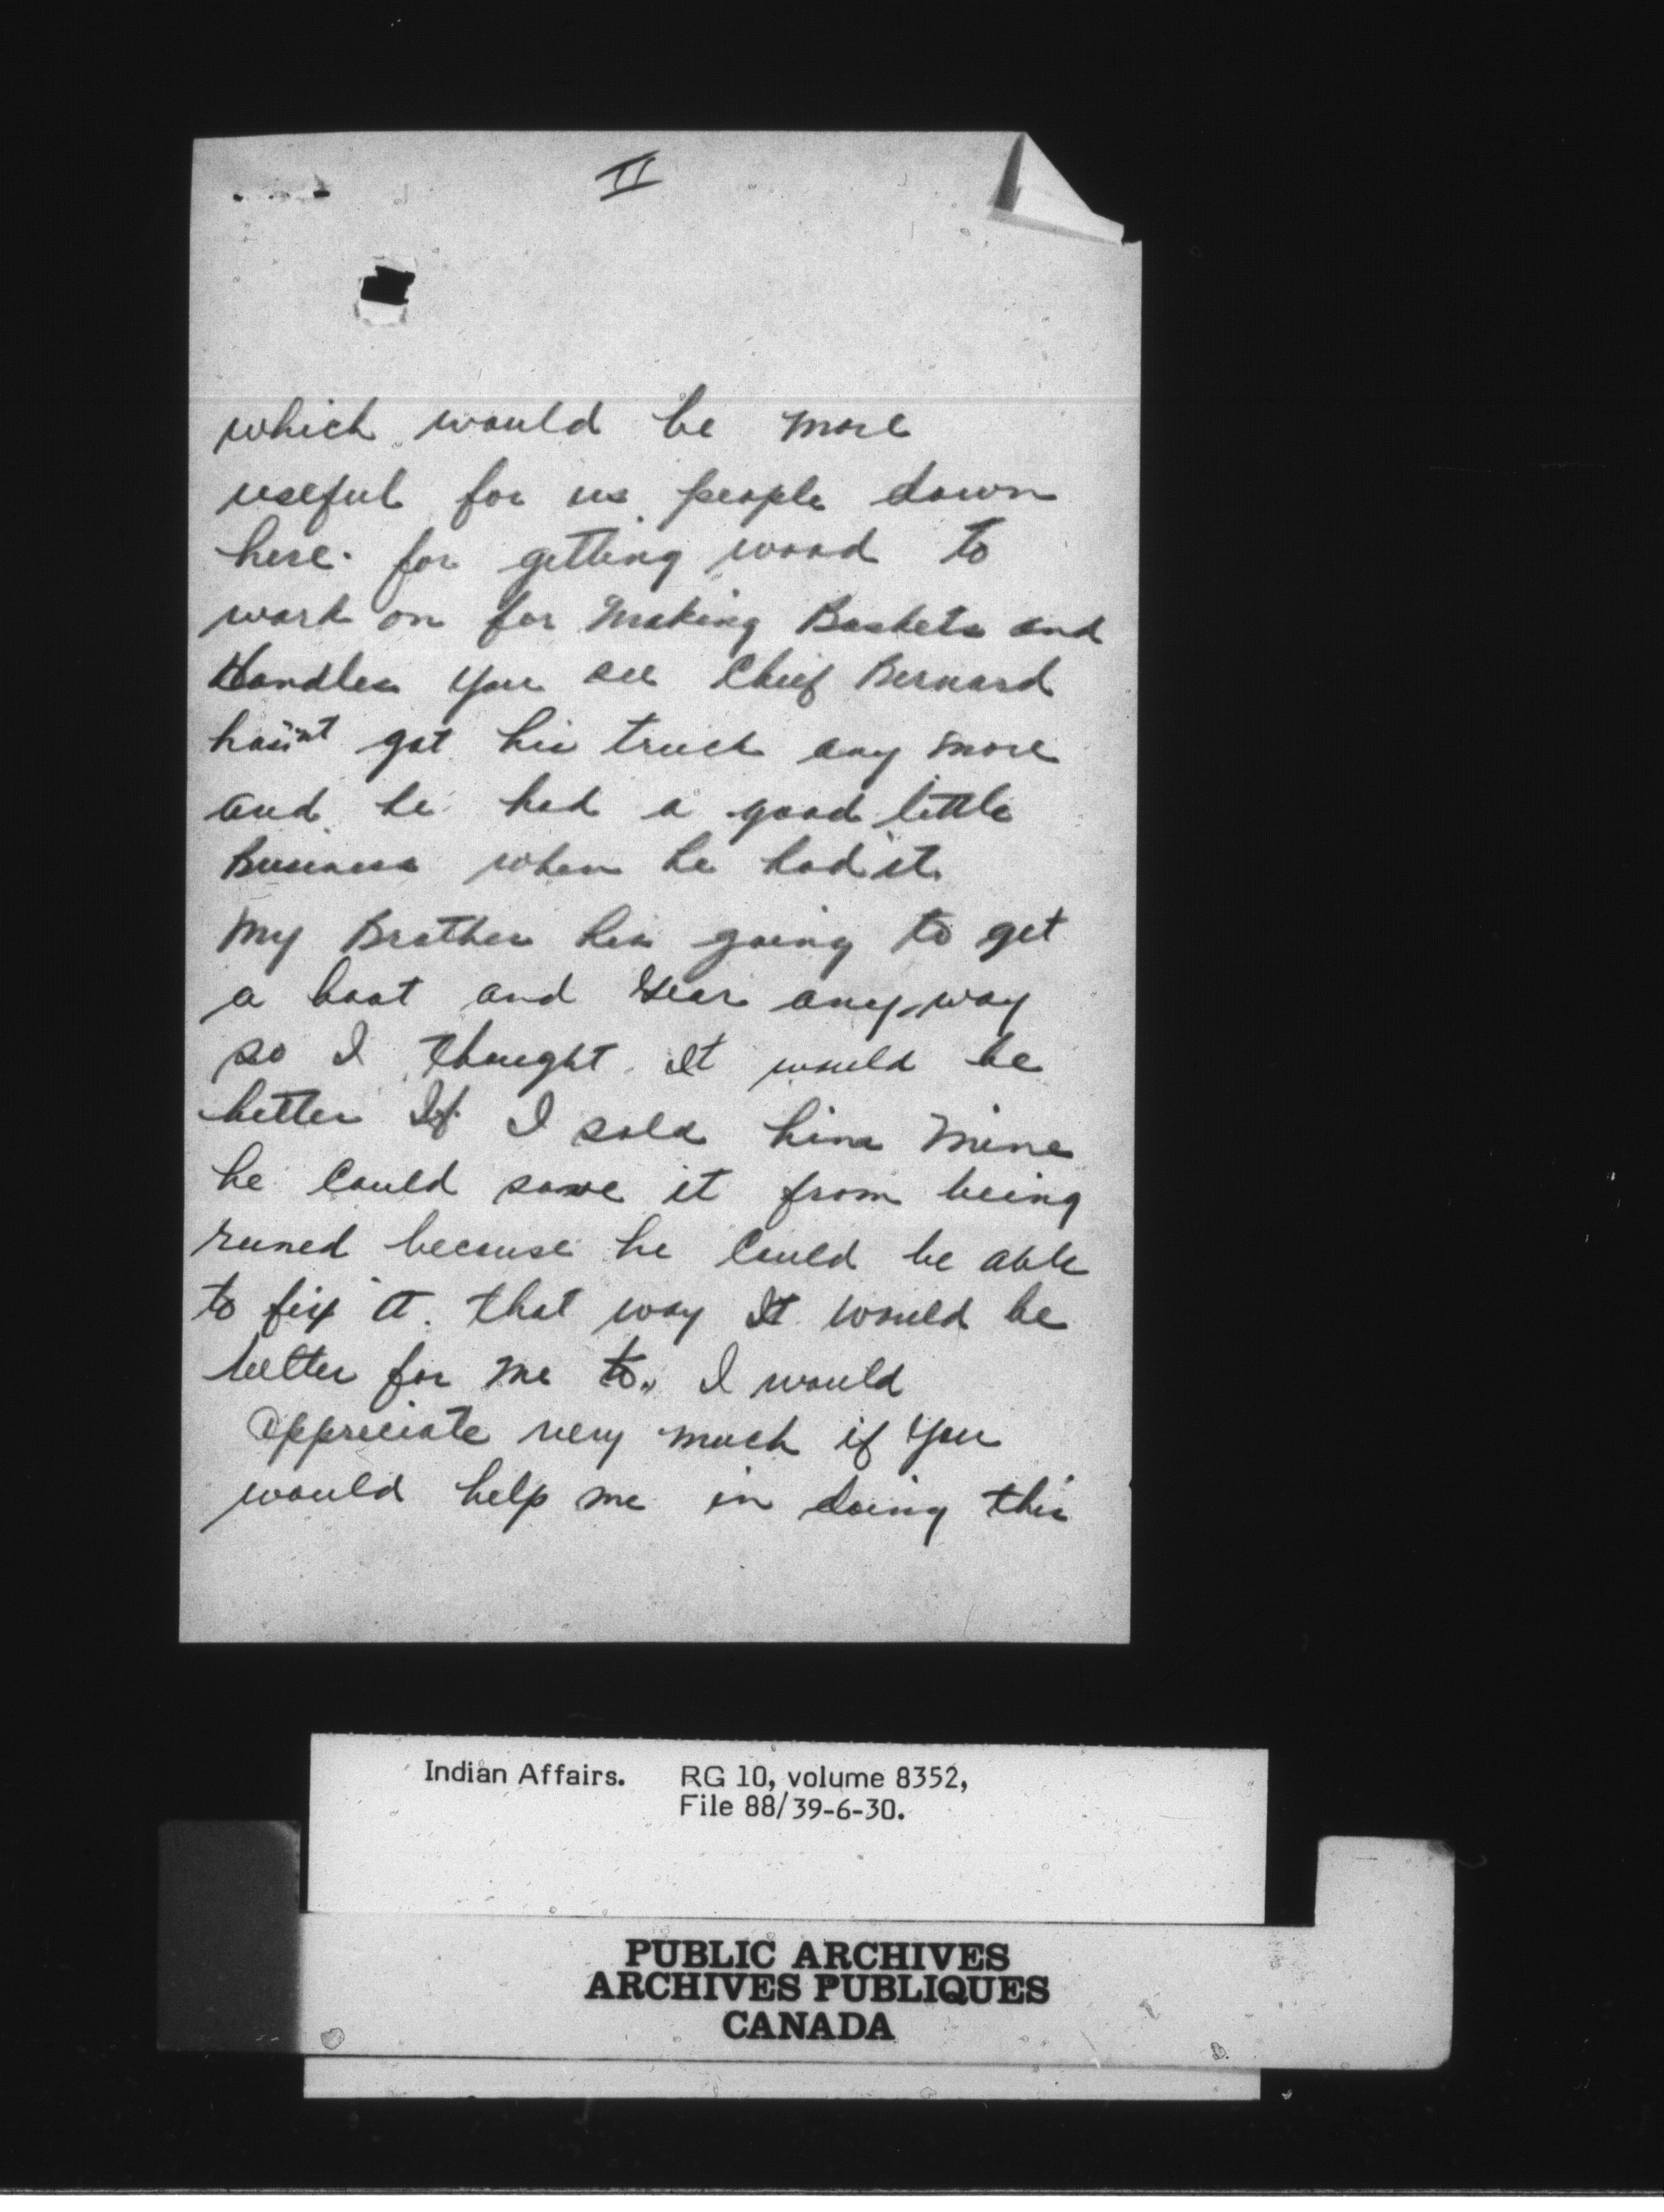 II
which would be more
useful for us people down
here. for getting wood to
work on for making Baskets and
Handles you see Chief Bernard
has'nt got his truck any more
and he had a good little
Business when he had it.
My Brother his going to get
a boat and Gear any way
so I thought It would be
better If I sold him mine
he Could save it from being
runed because he Could be able
to fix it. that way It would be
better for me to. I would
appreciate very much if you
would help me in doing this
Indian Affairs. RG 10, volume 8352,
File 88/39-6-30.
PUBLIC ARCHIVES
ARCHIVES PUBLIQUES
CANADA